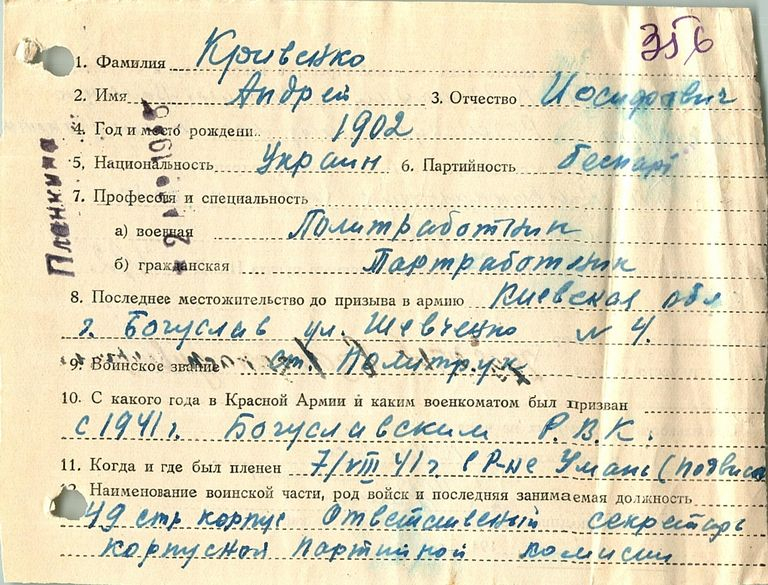 356
1. Фамилия Кривенко
2. Имя Андрей 3. Отчество Иосифович
4. Год и место рождени.. 1902
5. Национальность Украин 6. Партийность беспарт
7. Профессия и специальность
а) военная Политработник
б) гражданская Партработник
8. Последнее местожительство до призыва в армию Киевская обл
г. Богуслав ул. Шевченко № 4.
9. Воинское звание ст. Политрук
10. С какого года в Красной Армии и каким военкоматом был призван
с 1941 г. Богуславским Р.В.К.
11. Когда и где был пленен 7/VIII 41 г. в Р-не Умань (Подвысо
12. Наименование воинской части, род войск и последняя занимаемая должность
49 стр корпус Ответственный секретарь
корпусной партийной комисии
Планкина